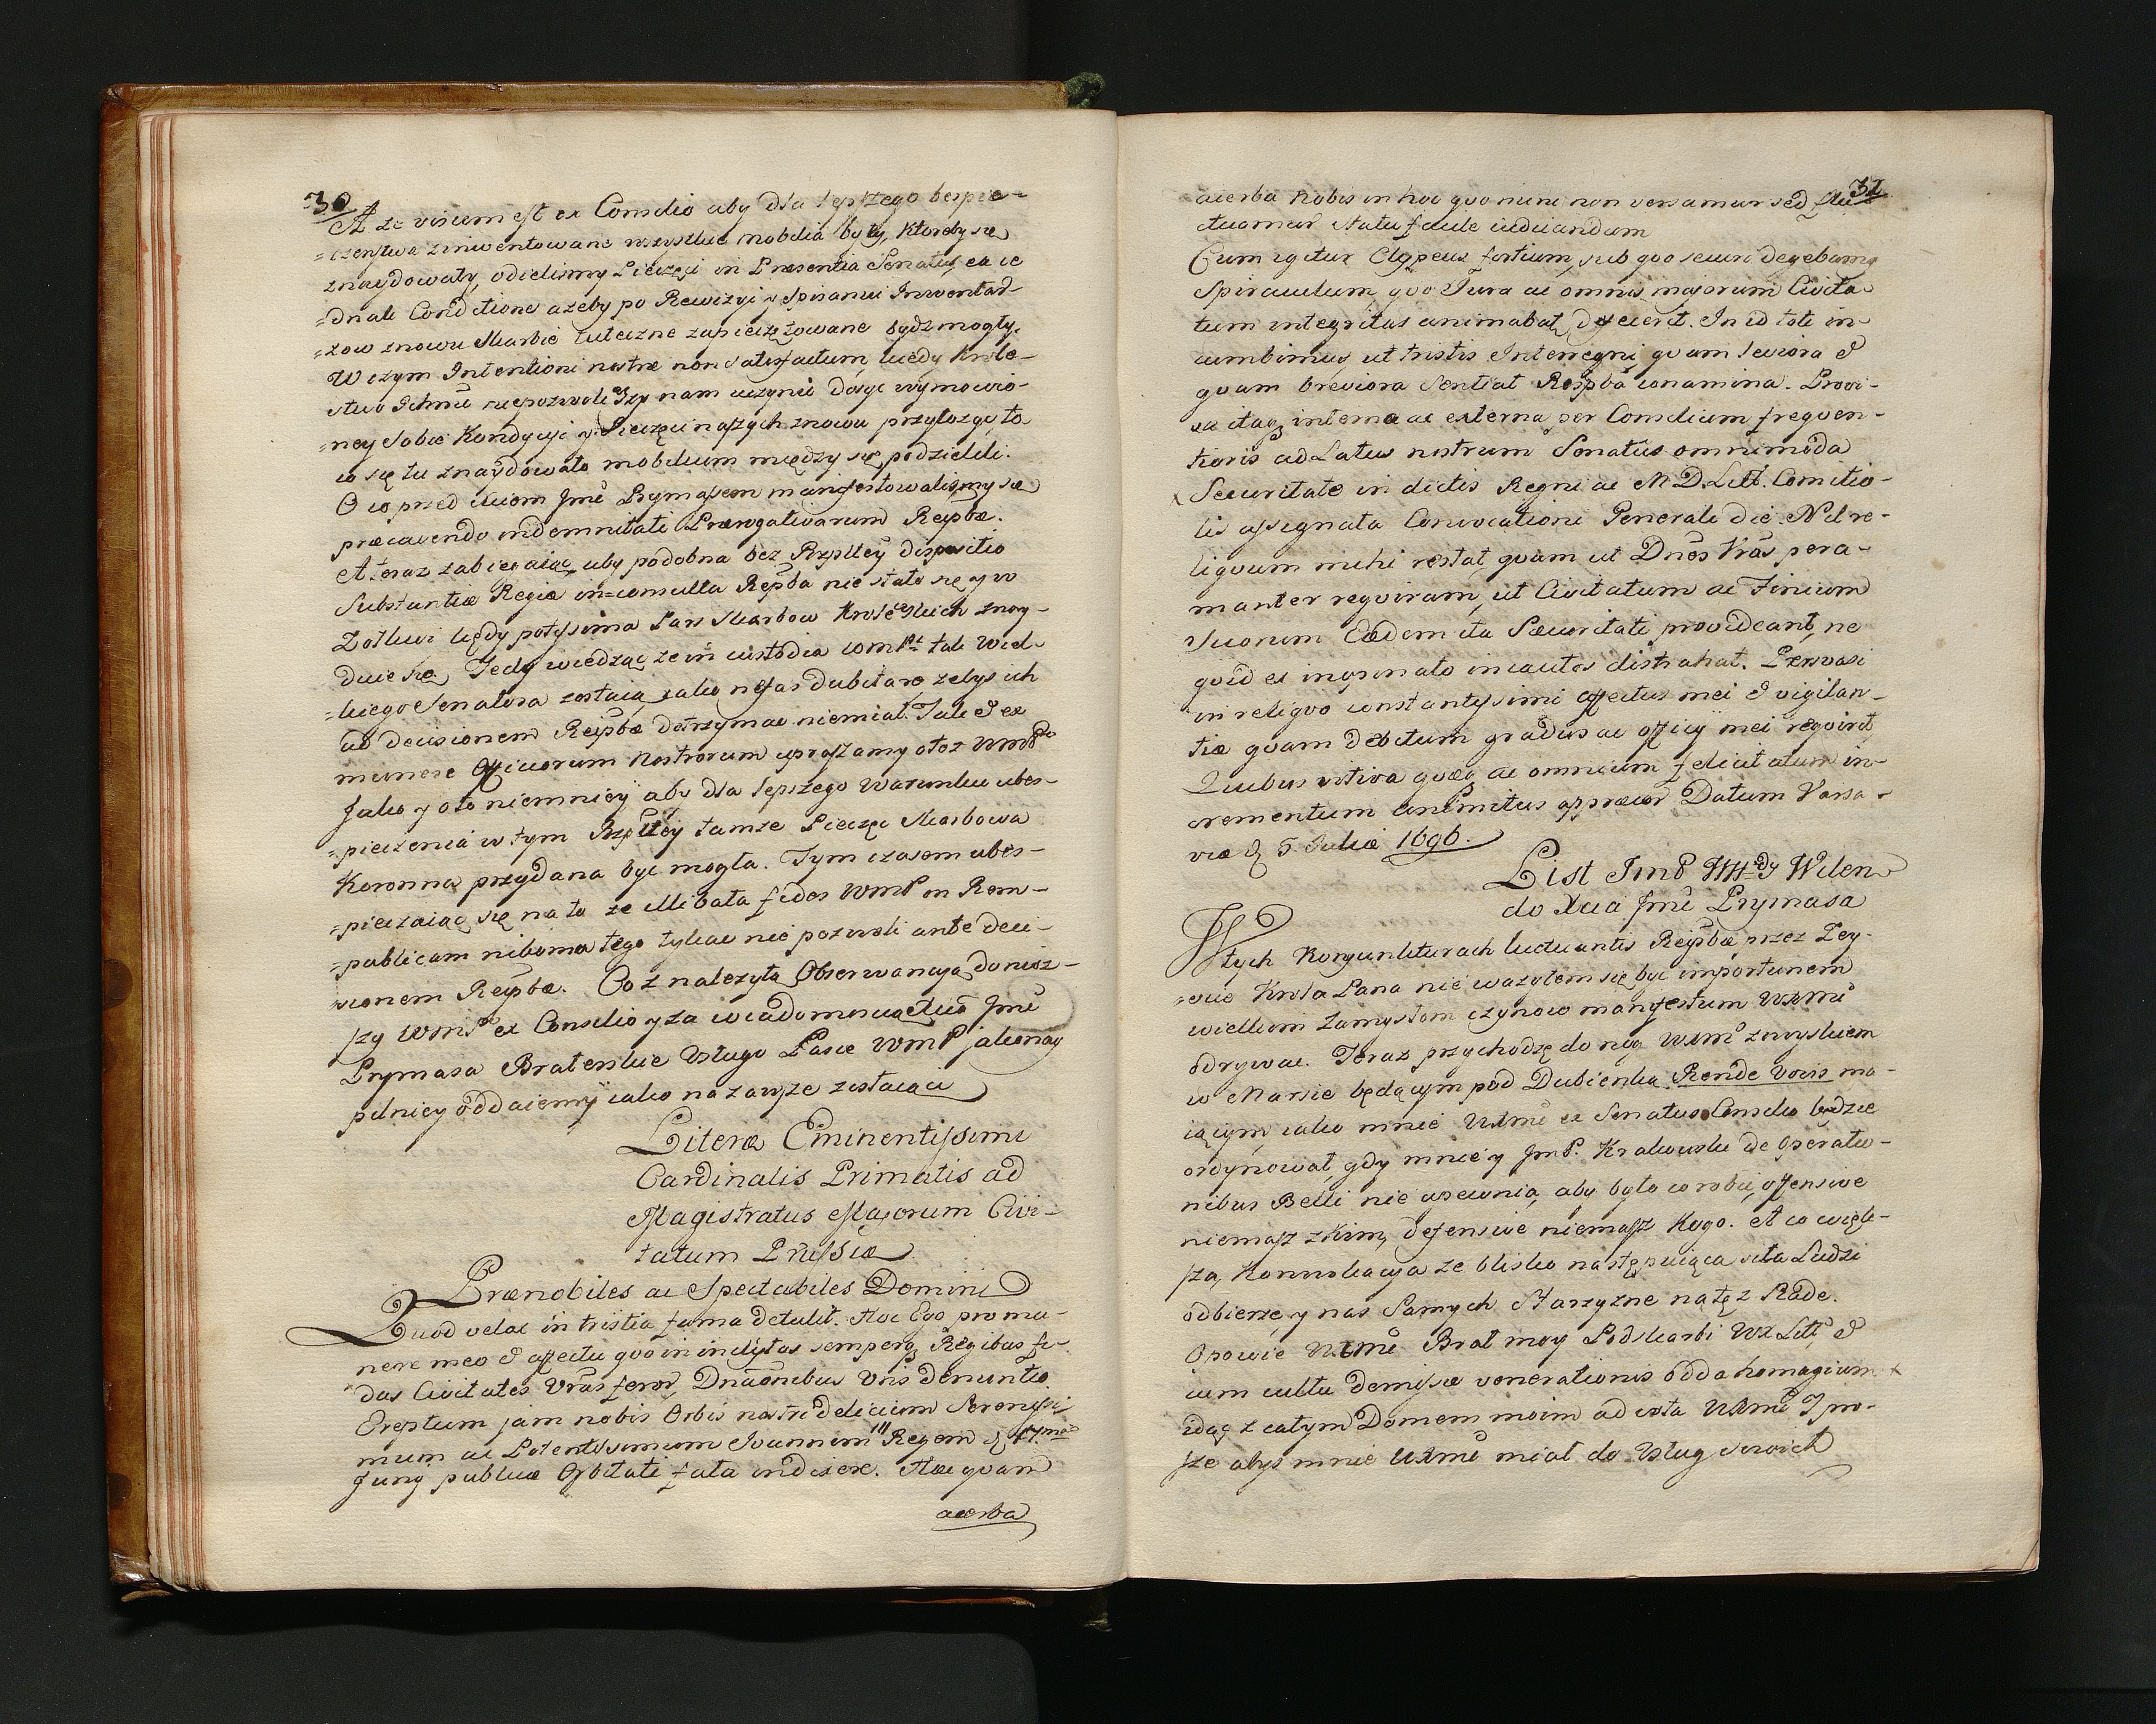 30
A że visum est ex Consilio aby dla lepszego bespie-
=czenstwa zinwentowane wszystkie mobilia były, ktoreby się
znaydowały, odieliśmy Pieczęci in Præsentia Senatus, ea ie
=dnak Conditione ażeby po Rewizyi y Spisaniu Inwentar-
=zow znowu Skarbie tuteczne zapieczętowane bydz mogły.
W czym Intentioni nostræ non satisfactum, kiedy Krole-
stwo Ichmć niepozwoliwszy nam uczynić dosyc wymowio-
=ney sobie Kondycyi y Pieczęci naszych znowu przyłożyc, to
co się tu znaydowało mobilium między się podzielili.
O co przed Xciem Jmć Prymasem manifestowaliśmy się
præcavendo indemnitati Prærogativarum Reipbæ.
A teraz zabiegaiąc, aby podobna bez Rzpltey dispositio
Substantiæ Regiæ in=consulta Repba nie stała się y w
Zołkwi kędy potissima Pars Skarbow Krolewskich znay-
duie się, Tedy wiedząc że in custodia tak Wiel-
=kiego Senatora zostaią iako nefas dubitare, żebyś ich
ad decisionem Reipbæ dotrzymac niemiał. Tak & ex
munere Officiorum Nostrorum upraszamy o to WmPa
Jako y o to niemniey aby dla lepszego Warunku ubes-
=pieczenia w tym Rzpltey tamże Pieczęc Skarbowa
Koronna przydana byc mogła. Tym czasem ubes-
=pieczaiąc się na to że illibata fides WmP in Rem-
=publicam nikomu tego tykac nie pozwoli ante deci-
sionem Reipbæ. Co z należytą Obserwancyą donioz-
szy WmP ex Consilio y za wiadomoscią Xcia Jmć
Prymasa Braterskie Usługi Łasce WmP jako nay
pilniey oddaiemy iako na zawsze zostaiący
Literæ Eminentissimi
Cardinalis Primatis ad
Magistratus Majorum Civi-
tatum Prussiæ
Prænobiles ac Spectabiles Domini
Quod velox in tristia fama detulit. Hoc Ego pro mu-
nere meo & affectu quo in inclytas semperq Regibus fi-
das Civitates Vrãs feror, Dnãonibus Vris denuntio
Ereptum jam nobis Orbis nostri delicium Serenissi
mum ac Potentissimum Joannem III Regem d 17ma
Junij publicæ Orbitati fata indixere. Hæc quam
acerba
31
acerba Nobis in hoc quo nunc non versamur sed fluc
ctuamur statu facile iudicandum
Cum igitur Clypeus fortium, sub quo securi degebamq
Spiraculum, quo Jura ac omnis majorum Civita-
tum integritas animabat, defecerit. In id toti in-
cumbimus, ut tristis Interregni quam leviora &
quam breviora sentiat Respba conamina. Provi-
sa itaq interna ac externa per Consilium frequen-
tioris ad Latus nostrum Senatus omnimoda
Securitate indictis Regni ac M. D. Litt. Comitio-
lis assignata Convocationi Generali die. Nil re-
liquum mihi restat, quam ut Dnẽs Vrãs pera-
manter requiram, ut Civitatum ac Finium
Suorum Eadem ita Securitati provideant, ne
quid ex inopinato incautos distrahat. Persvasi
in reliquo constantissimi affectus mei & vigilan-
tiæ quam debitum gradus ac officij mei requirit
Quibus votiva quæq ac omnium felicitatum in-
crementum animitus apprecor Datum Varsa-
viæ d 5 Julij 1696.
List JmP Wdy Wilen
do Xcia Jmć Prymasa
W tych Konjunkturach luctuantis Reipbæ przez Zey-
=scie Krola Pana nie ważyłem się byc importunem
wielkim zamysłom czynow manifestum WXMci
odrywac. Teraz przychodzę do nóg WXmci z woyskiem
w Marsie będącym pod Dubienką Rende Vocis ma-
iącym, iako mnie WXmć ex Senatus Consilio będzie
ordynował, gdy mnie y JmP. Krakowski de Operatio-
nibus Belli nie upewnia, aby było co robić, offensive
niemasz z kim, defensive niemasz kogo. A co więk-
sza, Konwokacya że blisko następuiąca siła Ludzi
odbierze, y nas Samych Starszyznę na tę z Radę.
Opowie WXmć Brat moy Podskarbi WX Litt &
cum cultu demissæ venerationis odda homagium
idąc z całym Domem moim ad vota WXmć I pro-
szę abyś mnie WXmć miał do Usług swoich